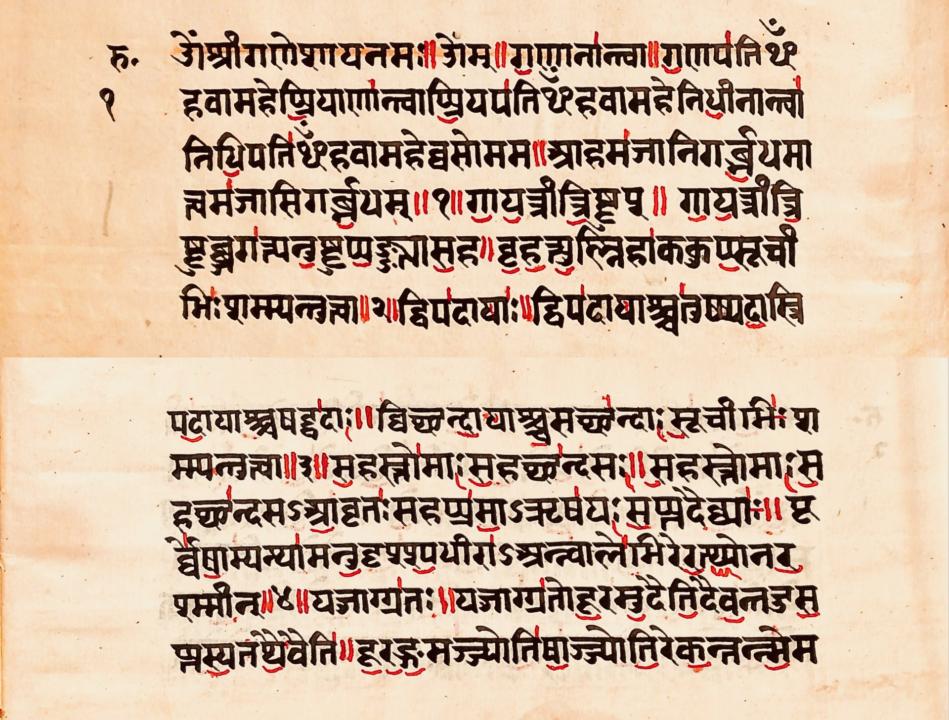 रु. ॐ श्रीगणेशायनमः॥ॐम्॥गणानान्त्वा॥गणपतिᳪ
१ हवामहेप्प्रियाणान्त्वाप्प्रियपतिᳪहवामहेनिधीनान्त्वा
निधिपतिᳪहवामहेव्वसोमम॥आहमजानिगर्ब्भधमा
त्त्वमजासिगर्ब्भधम्॥१॥गायत्रीत्रिष्टुप्॥ गायत्रीत्रि
ष्टुब्जगत्यनुष्टुप्पङ्क्त्यासह॥बृहत्युष्णिहाककुप्सूची
भिःशम्म्यन्तुत्त्वा॥२॥द्विपदायाः॥द्विपदायाश्चतुष्प्पदास्त्रि
पदायाश्चषट्पदाः॥व्विच्छन्दायाश्चसच्छन्दाःसूचीभिःश
म्म्यन्तुत्त्वा॥३॥सहस्तोमाःसहच्छन्दसः॥सहस्तोमाःस
हच्छन्दसऽआवृतःसहप्प्रमाऽऋषयःसप्प्तदैव्व्याः॥पू
र्व्वेषाम्पन्थामनुदृश्श्यधीराऽअन्वालेभिरेरत्थ्योनर
श्मीन्॥४॥यज्जाग्ग्रतः॥यज्जाग्ग्रतोदूरमुदैतिदैवन्तदुसु
प्प्तस्यतथैवैति॥दूरङ्गमञ्ज्योतिषाञ्ज्योतिरेकन्तन्न्मेम